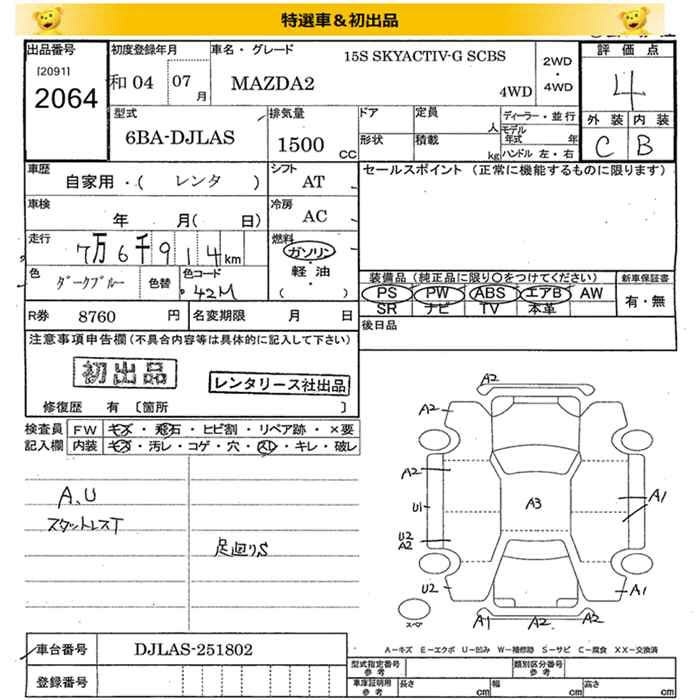 特選車＆初出品
出品番号
[2091]
2064
初度登録年月
和04 07月
車名・グレード
15S SKYACTIV-G SCBS
MAZDA2
4WD
2WD
・
4WD
評価点
4
外装 内装
C B
型式
6BA-DJLAS
排気量
1500 CC
ドア
定員 人
ディーラー・並行
モデル年式 年
形状
積載 kg
ハンドル 左・右
車歴
自家用・(レンタ)
シフト
AT
セールスポイント(正常に機能するものに限ります)
車検
年 月( 日)
冷房
AC
走行
7万6千914km
燃料
ガソリン
軽油
( )
色
ダークブルー
色替
色コード
42M
装備品(純正品に限り○をつけてください)
PS PW ABS エアB AW
SR ナビ TV 本革
新車保証書
有・無
R券 8760 円
名変期限 月 日
後日品
注意事項申告欄(不具合内容等は具体的に記入して下さい)
初出品
レンタリース社出品
修復歴 有 〔箇所 〕
検査員記入欄
FW キズ・飛石・ヒビ割・リペア跡・×要
内装 キズ・汚レ・コゲ・穴・スレ・キレ・破レ
A、U
スタットレスT
足廻りS
A2
A2
A2
U1
A3
A1
U2
A2
U2
A1
スペア
A1 A2 A2
A-キズ E-エクボ U-凹み W-補修跡 S-サビ C-腐食 XX-交換済
車台番号 DJLAS-251802
登録番号
型式指定番号
参考
類別区分番号
参考
車庫証明用
参考
長さ cm
幅 cm
高さ cm